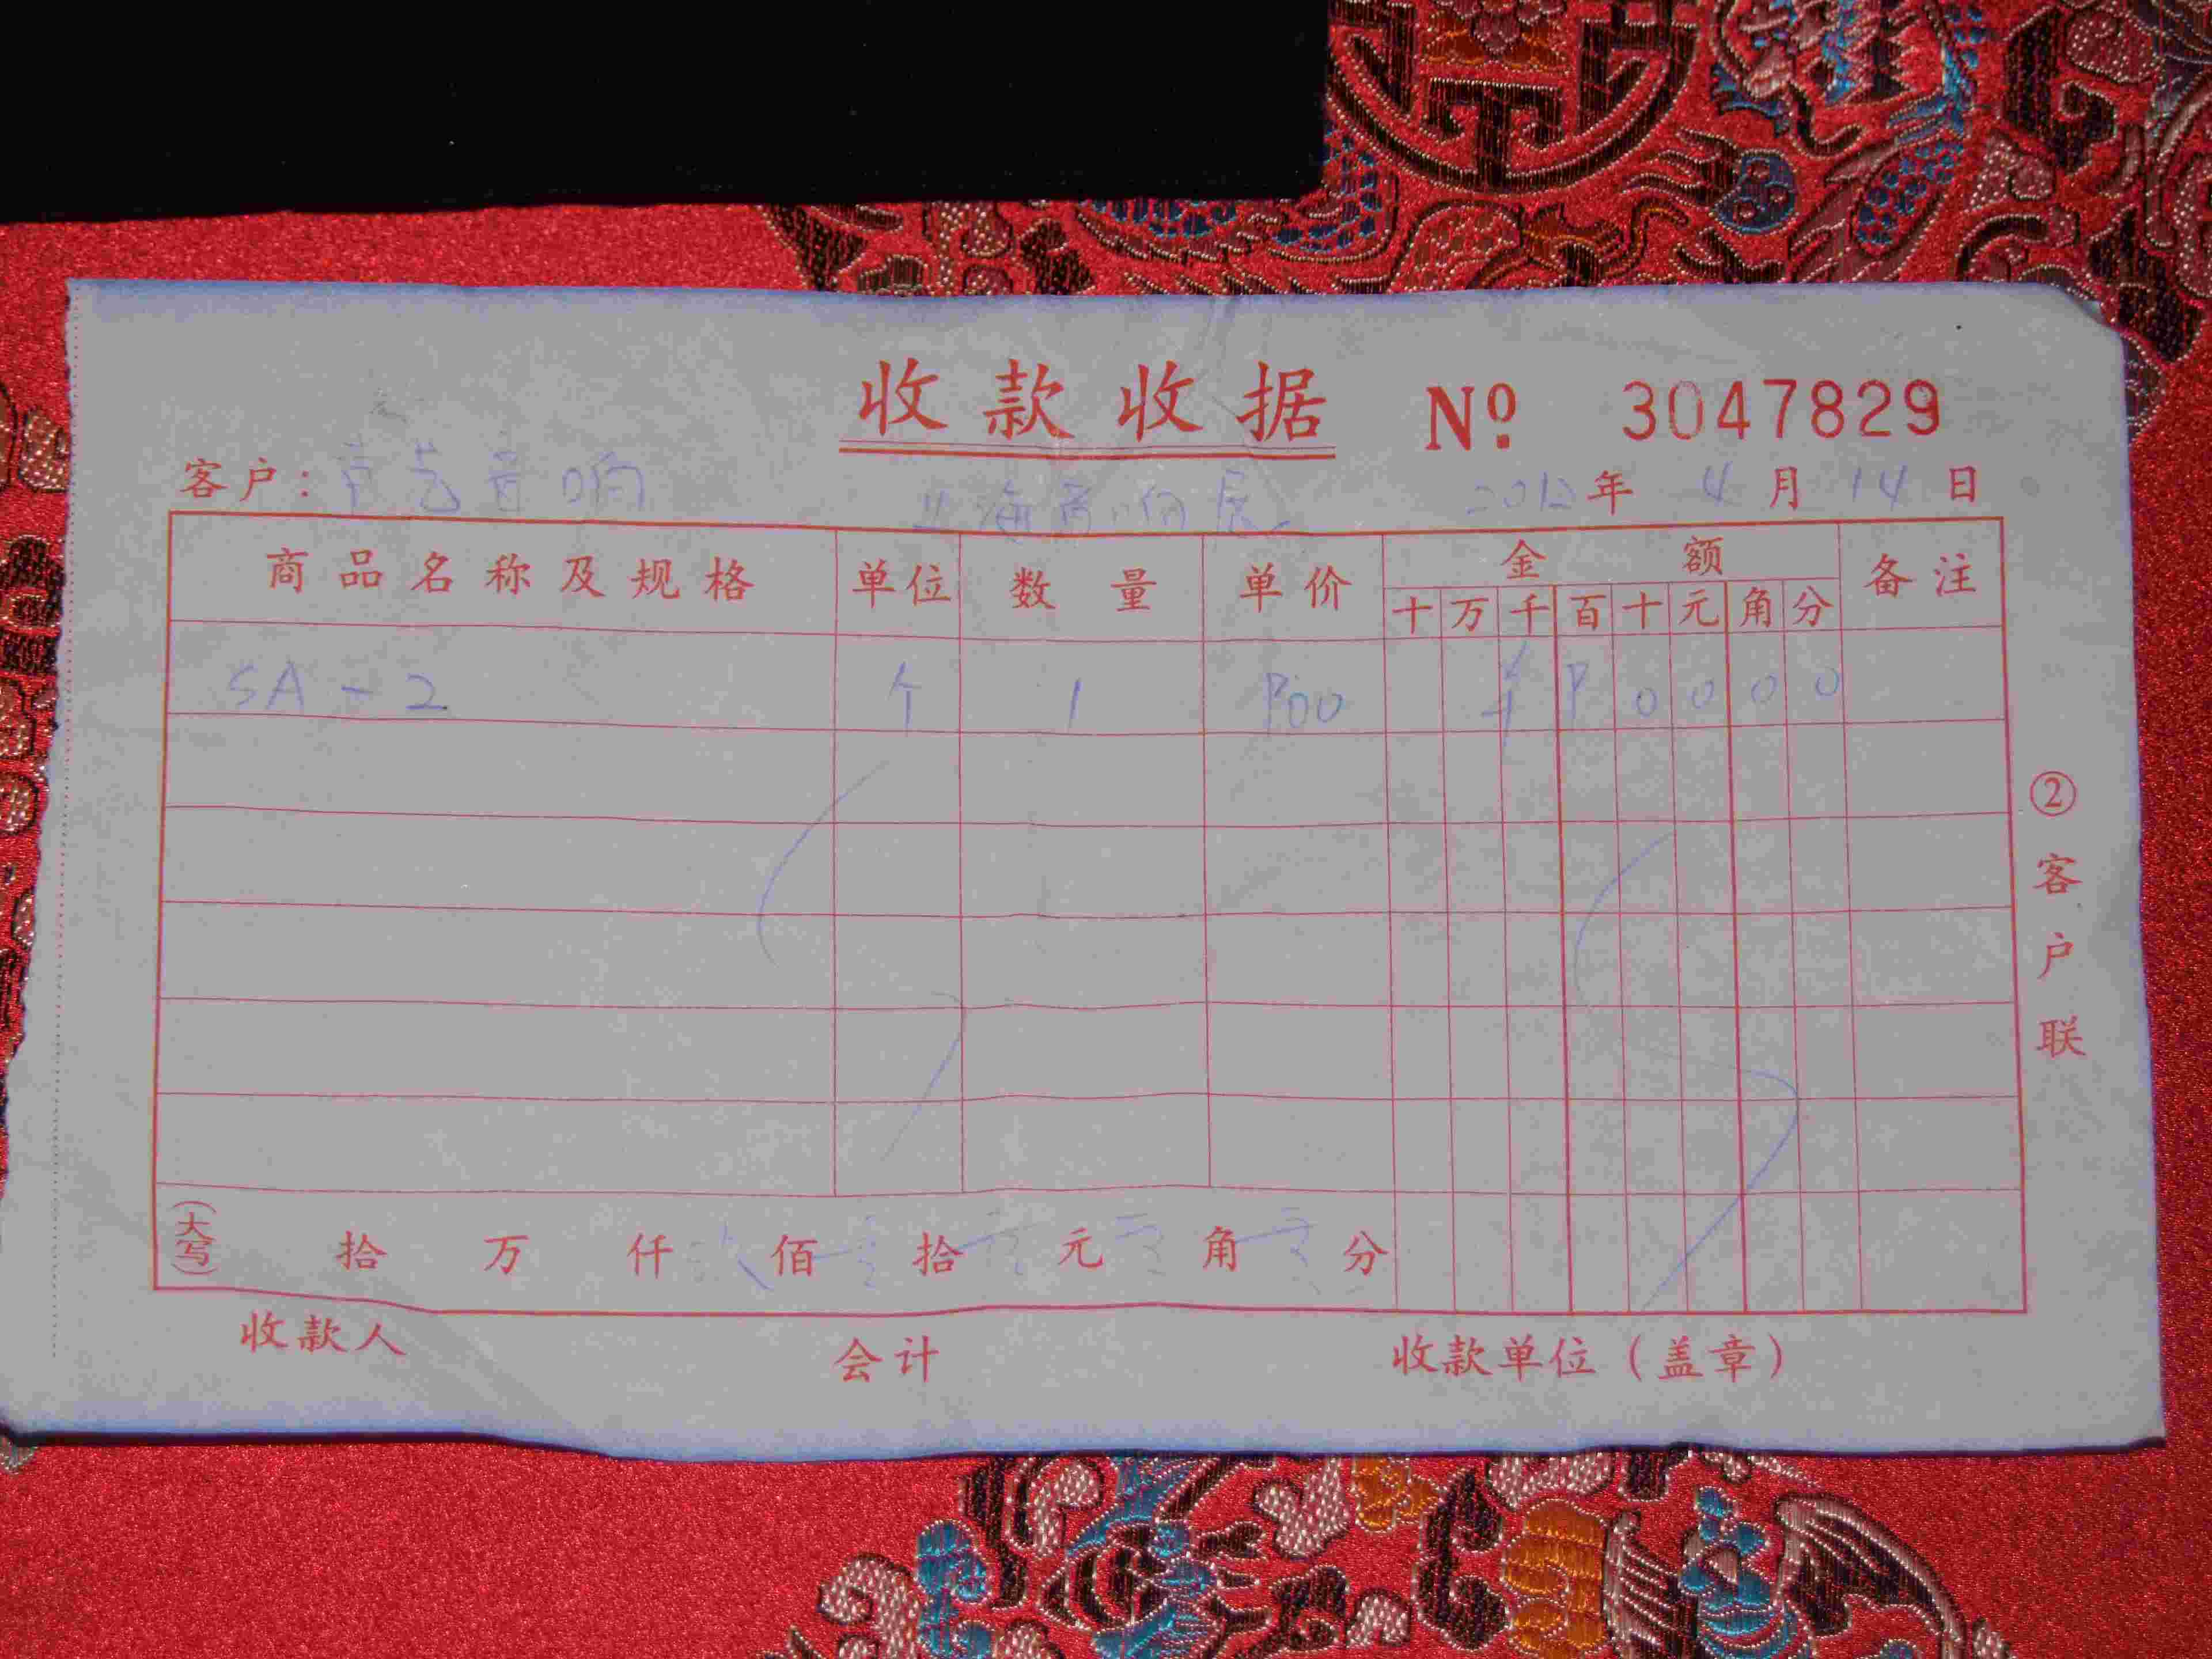 收款收据 Nº 3047829
客户：声艺音响 上海音响展 2012年4月14日
商品名称及规格 单位 数量 单价 金额 备注
十万千百十元角分
SA-2 个 1 800 ¥80000
(大写) 拾 万 仟 捌佰零拾零元零角零分
收款人 会计 收款单位（盖章）
②客户联